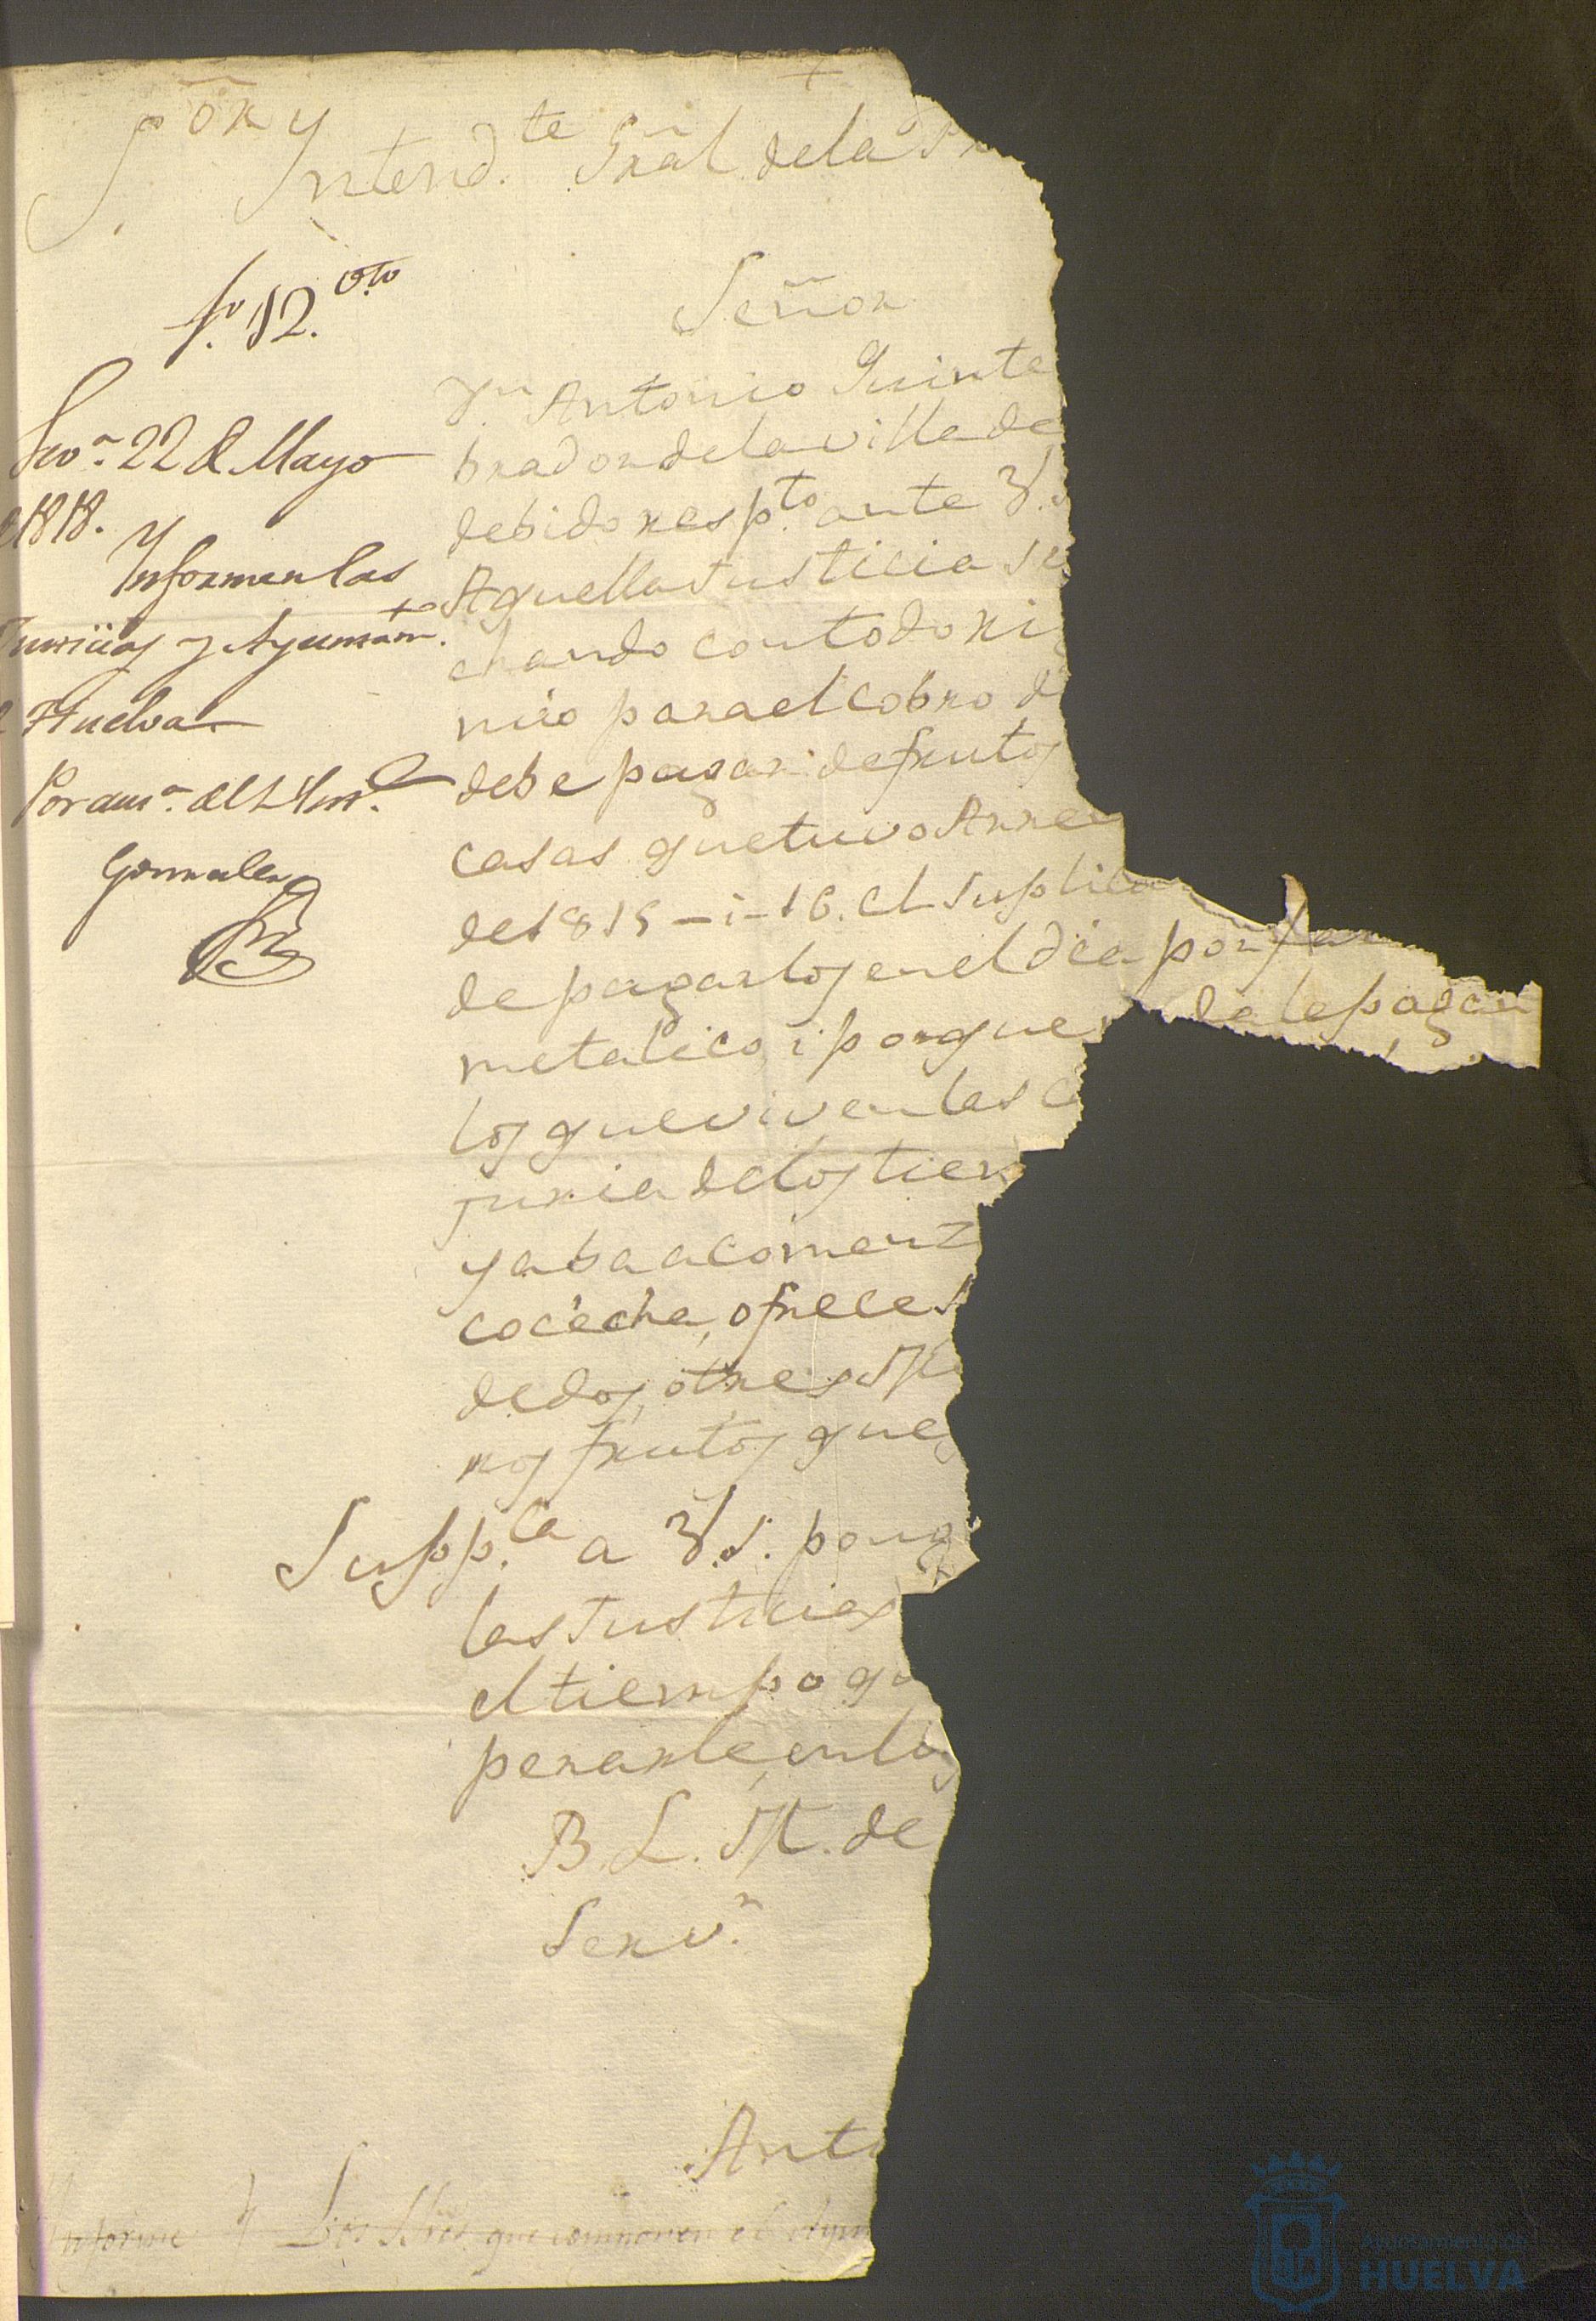 Sõr y Intend.te Gral dela
fo. 12. vto
Señor
Sevª. 22 de Mayo
de 1818.
Informen las
Justicias y Ayuntam.to
de Huelva
Gonzalez
Dn. Antonio Quinte
brador dela villa de
debido resp.to ante V.S
Aquella Justicia se
chando con todo rig
nio para el cobro d
debe pagar de frutos
casas que tuvo Arren
de 1815 - i - 16. el Suplica
de pagarlos en el dia por fa
metalico, i porque n da le pagan
los que viven las c
juria de los tiem
ya ba a comenz
cocecha, ofrece s
de dos, o tres
ros frutos que
Supp.ca a V.S. pong
las Justicias
el tiempo qu
perarle, en los
B. L. M. de
Serv.r
Anto
Informe Los Sres. que componen el Ayun
Ayuntamiento de
HUELVA